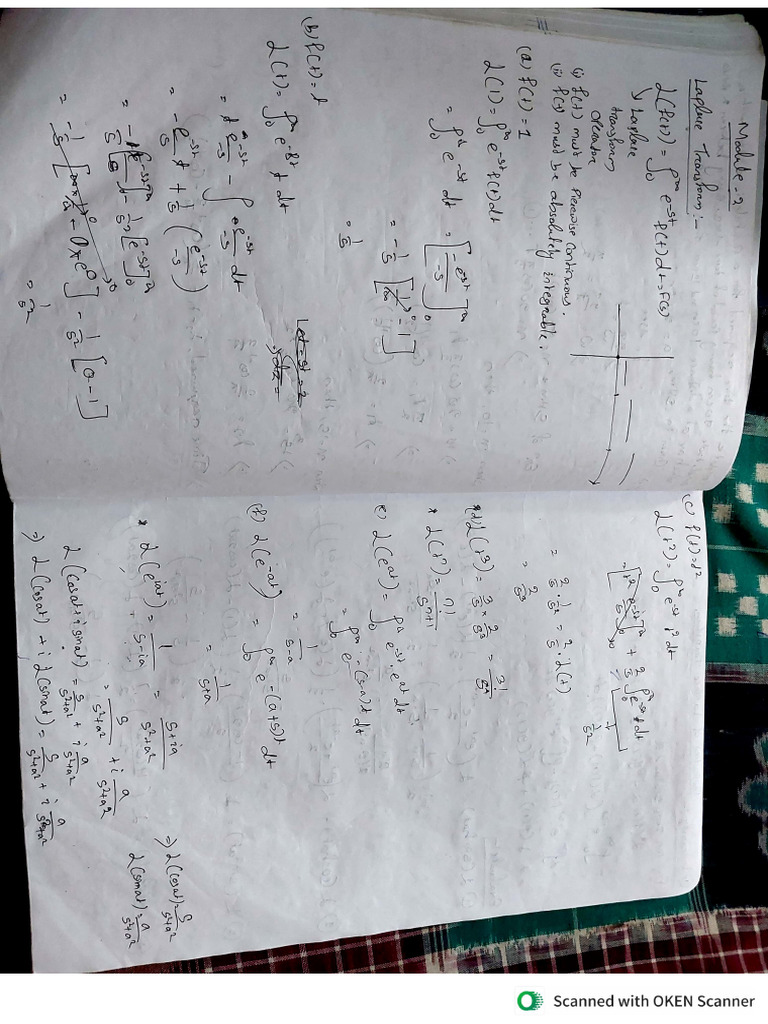 Module-2
Laplace Transform:-
L(f(t)) = ∫₀^∞ e^-st f(t) dt = F(s)
↳ Laplace
transform
operator
(i) f(t) must be piecewise continuous.
(ii) f(t) must be absolutely integrable.
(a) f(t) = 1
L(1) = ∫₀^∞ e^-st f(t) dt
= ∫₀^∞ e^-st dt = [-e^-st/-s]₀^∞
= -1/s [1/∞ - 1]
= 1/s
(b) f(t) = t
L(t) = ∫₀^∞ e^-st t dt
= t e^-st/-s - ∫ e^-st/-s dt
= -e^-st/s t + 1/s (e^-st/-s)
= -1/s [t e^-st]₀^∞ - 1/s² [e^-st]₀^∞
= -1/s [∞ × 1/∞ - 0×e^0] - 1/s² [0-1]
= 1/s²
(c) f(t) = t²
L(t²) = ∫₀^∞ e^-st t² dt
= [t² e^-st/-s]₀^∞ + 2/s ∫₀^∞ e^-st t dt
1/s²
= 2/s · 1/s² = 2/s · L(t)
= 2/s³
*d) L(t³) = 3/s × 2/s³ = 3!/s⁴
* L(tⁿ) = n!/s^n+1
e) L(e^at) = ∫₀^∞ e^-st · e^at dt
= ∫₀^∞ e^-(s-a)t dt
= 1/s-a
(f) L(e^-at) = ∫₀^∞ e^-(a+s)t dt
= 1/s+a
* L(e^iat) = 1/s-ia = s+ia/s²+a²
= s/s²+a² + i a/s²+a²
L(cosat + i sinat) = s/s²+a² + i a/s²+a²
⇒ L(cosat) + i L(sinat) = s/s²+a² + i a/s²+a²
⇒ L(cosat) = s/s²+a²
L(sinat) = a/s²+a²
Scanned with OKEN Scanner